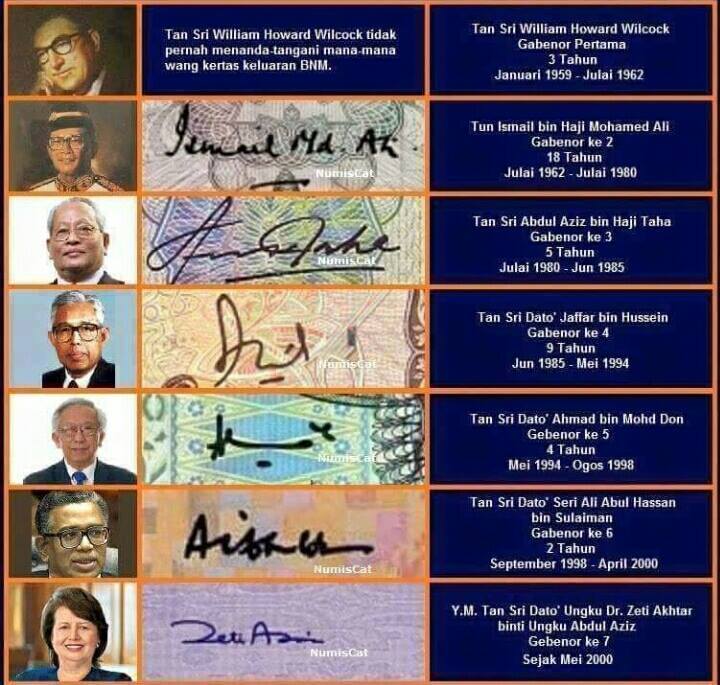 Tan Sri William Howard Wilcock tidak
pernah menanda-tangani mana-mana
wang kertas keluaran BNM.
Tan Sri William Howard Wilcock
Gabenor Pertama
3 Tahun
Januari 1959 - Julai 1962
Ismail Md. Ali
NumisCat
Tun Ismail bin Haji Mohamed Ali
Gabenor ke 2
18 Tahun
Julai 1962 - Julai 1980
NumisCat
Tan Sri Abdul Aziz bin Haji Taha
Gabenor ke 3
5 Tahun
Julai 1980 - Jun 1985
NumisCat
Tan Sri Dato' Jaffar bin Hussein
Gabenor ke 4
9 Tahun
Jun 1985 - Mei 1994
NumisCat
Tan Sri Dato' Ahmad bin Mohd Don
Gebenor ke 5
4 Tahun
Mei 1994 - Ogos 1998
NumisCat
Tan Sri Dato' Seri Ali Abul Hassan
bin Sulaiman
Gabenor ke 6
2 Tahun
September 1998 - April 2000
Zeti Aziz
NumisCat
Y.M. Tan Sri Dato' Ungku Dr. Zeti Akhtar
binti Ungku Abdul Aziz
Gebenor ke 7
Sejak Mei 2000